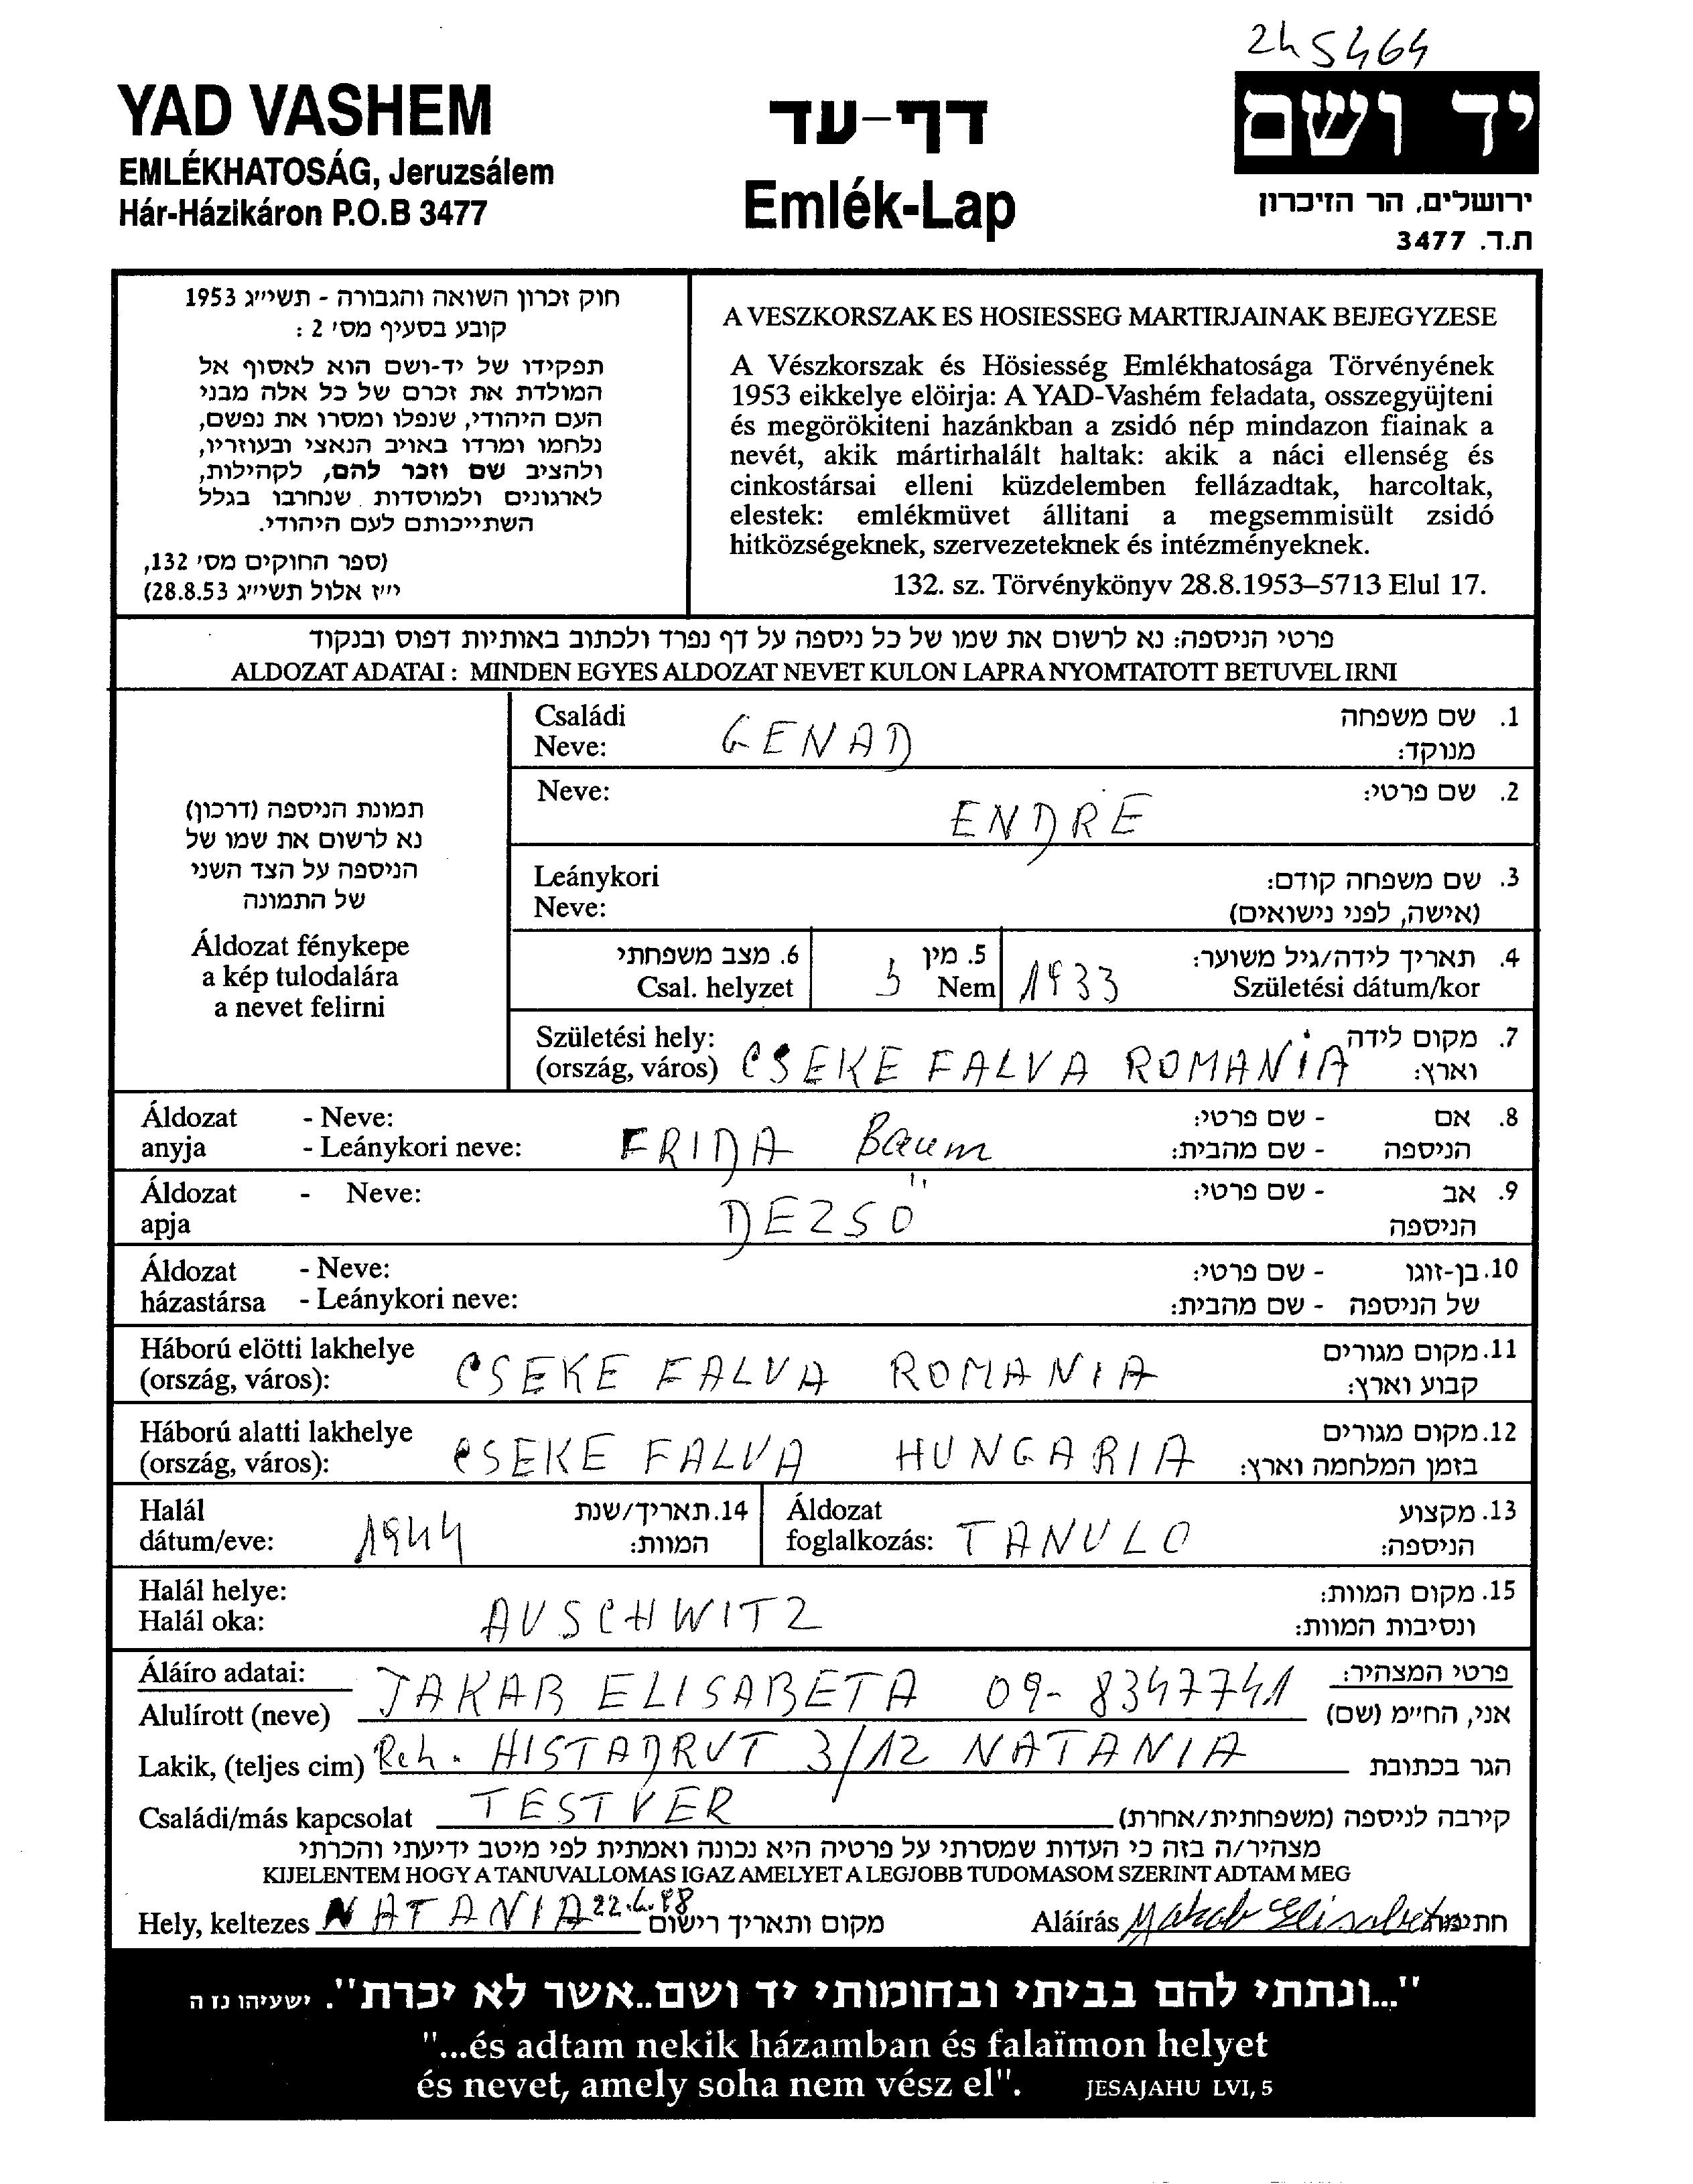 245464
YAD VASHEM
EMLÉKHATOSÁG, Jeruzsálem
Hár-Házikáron P.O.B 3477
דף-עד
Emlék-Lap
יד ושם
ירושלים, הר הזיכרון
ת.ד. 3477
חוק זכרון השואה והגבורה - תשי״ג 1953
קובע בסעיף מס׳ 2 :
תפקידו של יד-ושם הוא לאסוף אל
המולדת את זכרם של כל אלה מבני
העם היהודי, שנפלו ומסרו את נפשם,
נלחמו ומרדו באויב הנאצי ובעוזריו,
ולהציב שם וזכר להם, לקהילות,
לארגונים ולמוסדות שנחרבו בגלל
השתייכותם לעם היהודי.
(ספר החוקים מס׳ 132,
י״ז אלול תשי״ג 28.8.53)
A VESZKORSZAK ES HOSIESSEG MARTIRJAINAK BEJEGYZESE
A Vészkorszak és Hösiesség Emlékhatosága Törvényének
1953 eikkelye elöirja: A YAD-Vashém feladata, osszegyüjteni
és megörökiteni hazánkban a zsidó nép mindazon fiainak a
nevét, akik mártirhalált haltak: akik a náci ellenség és
cinkostársai elleni küzdelemben fellázadtak, harcoltak,
elestek: emlékmüvet állitani a megsemmisült zsidó
hitközségeknek, szervezeteknek és intézményeknek.
132. sz. Törvénykönyv 28.8.1953–5713 Elul 17.
פרטי הניספה: נא לרשום את שמו של כל ניספה על דף נפרד ולכתוב באותיות דפוס ובנקוד
ALDOZAT ADATAI : MINDEN EGYES ALDOZAT NEVET KULON LAPRA NYOMTATOTT BETUVEL IRNI
תמונת הניספה (דרכון)
נא לרשום את שמו של
הניספה על הצד השני
של התמונה
Áldozat fénykepe
a kép tulodalára
a nevet felirni
Családi
Neve:
GENAD
1. שם משפחה
מנוקד:
Neve:
ENDRE
2. שם פרטי:
Leánykori
Neve:
3. שם משפחה קודם:
(אישה, לפני נישואים)
6. מצב משפחתי
Csal. helyzet
5. מין
Nem
4. תאריך לידה/גיל משוער:
1933 Születési dátum/kor
Születési hely:
(ország, város) CSEKE FALVA ROMANIA
7. מקום לידה
וארץ:
Áldozat - Neve:
anyja - Leánykori neve: FRIDA Baum
8. אם - שם פרטי:
הניספה - שם מהבית:
Áldozat - Neve:
apja
DEZSÖ
9. אב - שם פרטי:
הניספה
Áldozat - Neve:
házastársa - Leánykori neve:
10. בן-זוגו - שם פרטי:
של הניספה - שם מהבית:
Háború elötti lakhelye
(ország, város): CSEKE FALVA ROMANIA
11. מקום מגורים
קבוע וארץ:
Háború alatti lakhelye
(ország, város): CSEKE FALVA HUNGARIA
12. מקום מגורים
בזמן המלחמה וארץ:
Halál
dátum/eve: 1944
14. תאריך/שנת
המוות:
Áldozat
foglalkozás: TANULO
13. מקצוע
הניספה:
Halál helye:
Halál oka: AUSCHWITZ
15. מקום המוות:
ונסיבות המוות:
Áláíro adatai:
פרטי המצהיר:
Alulírott (neve) JAKAB ELISABETA 09-8347741 אני, הח״מ (שם)
Lakik, (teljes cim) Reh. HISTADRUT 3/12 NATANIA הגר בכתובת
Családi/más kapcsolat TESTVER קירבה לניספה (משפחתית/אחרת)
מצהיר/ה בזה כי העדות שמסרתי על פרטיה היא נכונה ואמתית לפי מיטב ידיעתי והכרתי
KIJELENTEM HOGY A TANUVALLOMAS IGAZ AMELYET A LEGJOBB TUDOMASOM SZERINT ADTAM MEG
Hely, keltezes NATANIA מקום ותאריך רישום Aláírás Jakab Elisabeta חתימה
"...ונתתי להם בביתי ובחומותי יד ושם..אשר לא יכרת". ישעיהו נז ה
"...és adtam nekik házamban és falaïmon helyet
és nevet, amely soha nem vész el". JESAJAHU LVI, 5